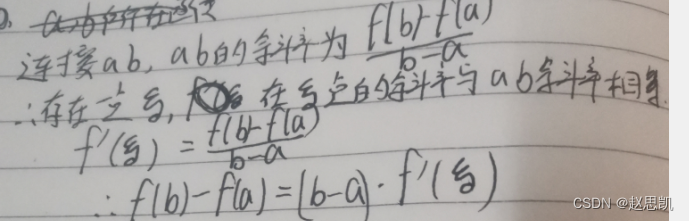 连接ab,ab的斜率为 f(b)-f(a) / b-a
∴存在一点ξ,在ξ点的斜率与ab斜率相同
f'(ξ) = f(b)-f(a) / b-a
∴ f(b)-f(a)=(b-a)·f'(ξ)
CSDN @赵思凯